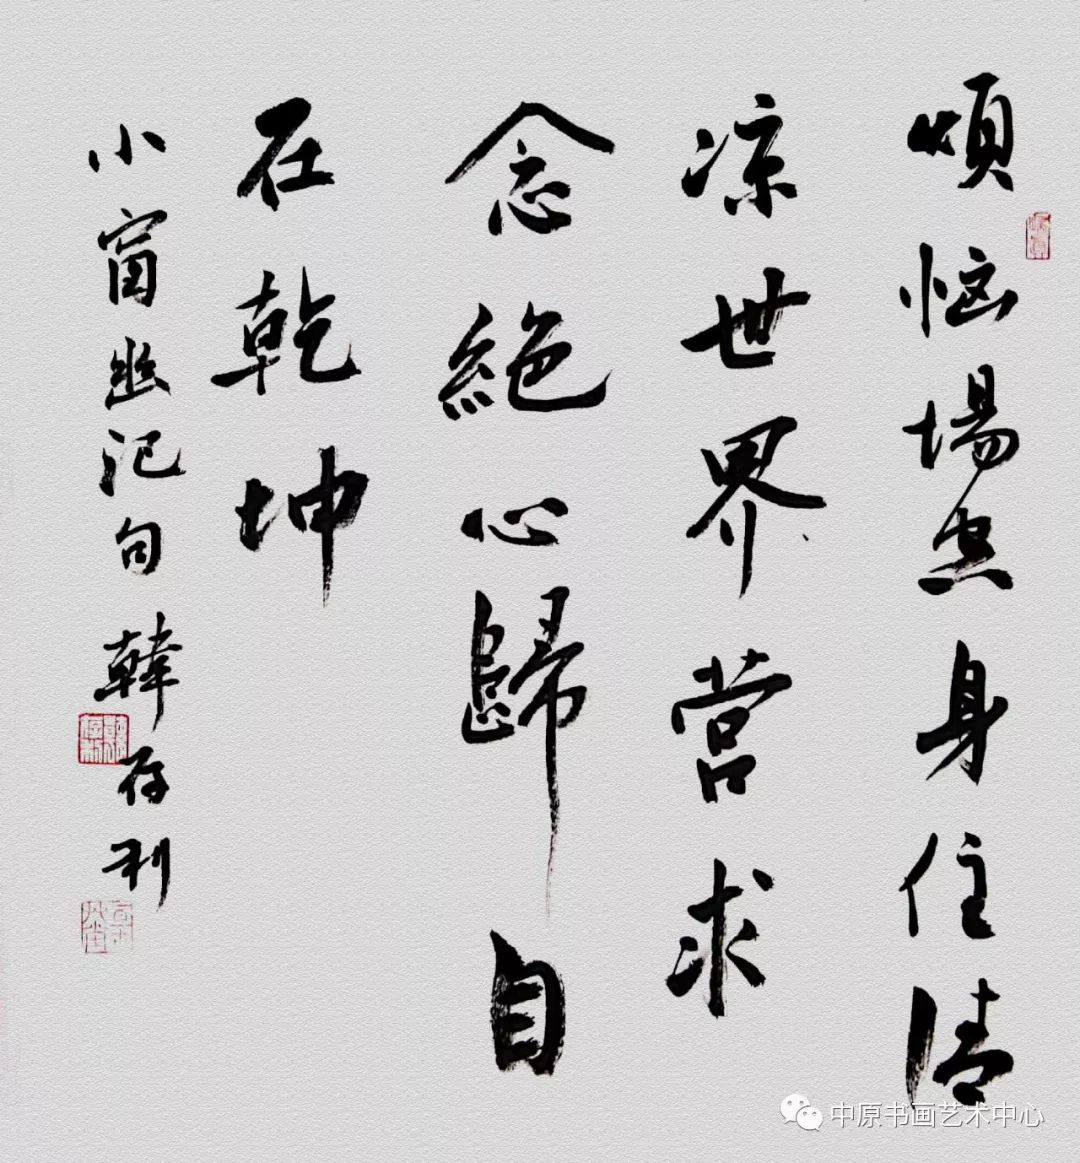 煩惱場空身住清
凉世界營求
念絕心歸自
在乾坤
小窗幽記句 韓存利
中原书画艺术中心